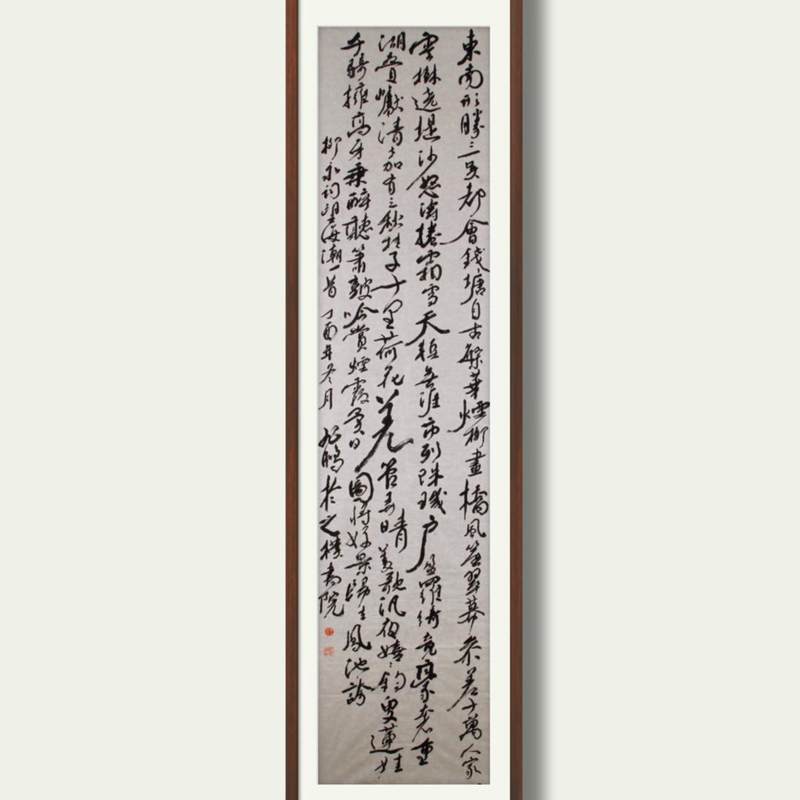 東南形勝三吳都會錢塘自古繁華煙柳畫橋風簾翠幕參差十萬人家
雲樹遶堤沙怒濤捲霜雪天塹無涯市列珠璣戶盈羅綺競豪奢重
湖疊巘清嘉有三秋桂子十里荷花羌管弄晴菱歌泛夜嬉嬉釣叟蓮娃
千騎擁高牙乘醉聽簫鼓吟賞煙霞異日圖將好景歸去鳳池誇
柳永詞望海潮一首 丁酉年冬月 鵬於之樸書院